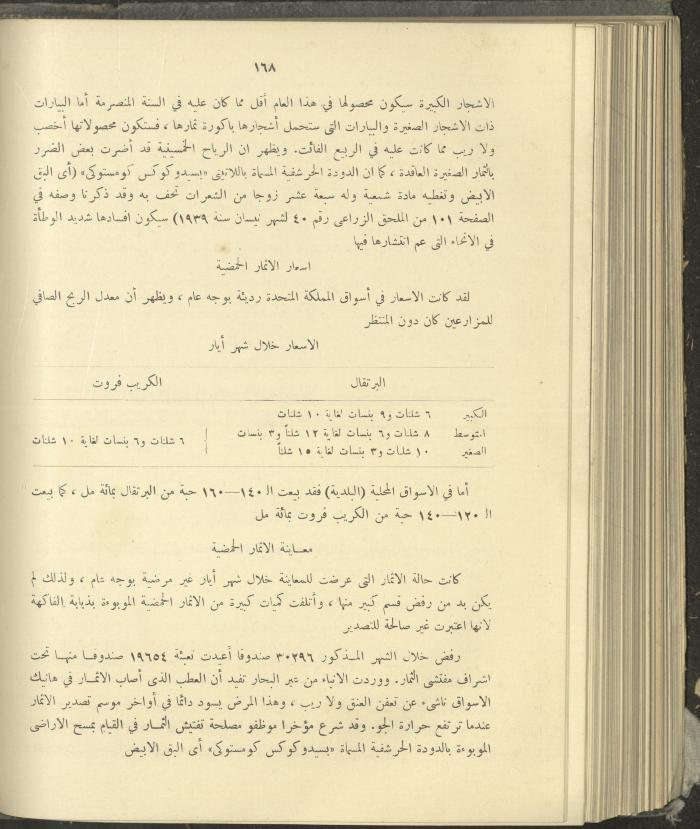 ١٦٨
الاشجار الكبيرة سيكون محصولها في هذا العام أقل مما كان عليه في السنة المنصرمة أما البيارات
ذات الاشجار الصغيرة والبيارات التي ستحمل أشجارها باكورة ثمارها ، فستكون محصولاتها أخصب
ولا ريب مما كانت عليه في الربيع الفائت. ويظهر ان الرياح الخمسينية قد أضرت بعض الضرر
بالثمار الصغيرة العاقدة ، كما ان الدودة الحرشفية المسماة باللاتيني «بسيدوكوكس كومستوكي» (أى البق
الابيض وتغطيه مادة شمعية وله سبعة عشر زوجا من الشعرات تحف به وقد ذكرنا وصفه في
الصفحة ١٠١ من الملحق الزراعى رقم ٤٠ لشهر نيسان سنة ١٩٣٩) سيكون افسادها شديد الوطأة
في الانحاء التى عم انتشارها فيها
اسعار الاثمار الحمضية
لقد كانت الاسعار في أسواق المملكة المتحدة رديئة بوجه عام ، ويظهر أن معدل الربح الصافي
للمزارعين كان دون المنتظر
الاسعار خلال شهر أيار
البرتقال الكريب فروت
الكبير ٦ شلنات و٩ بنسات لغاية ١٠ شلنات
المتوسط ٨ شلنات و٦ بنسات لغاية ١٢ شلناً و٣ بنسات
الصغير ١٠ شلنات و٣ بنسات لغاية ١٥ شلناً
٦ شلنات و٦ بنسات لغاية ١٠ شلنات
أما في الاسواق المحلية (البلدية) فقد بيعت الـ ١٤٠—١٦٠ حبة من البرتقال بمائة مل ، كما بيعت
الـ ١٢٠—١٤٠ حبة من الكريب فروت بمائة مل
معـاينة الاثمار الحمضية
كانت حالة الاثمار التى عرضت للمعاينة خلال شهر أيار غير مرضية بوجه عام ، ولذلك لم
يكن بد من رفض قسم كبير منها ، وأتلفت كميات كبيرة من الاثمار الحمضية الموبوءة بذبابة الفاكهة
لانها اعتبرت غير صالحة للتصدير
رفض خلال الشهر المـذكور ٣٠٢٩٦ صندوقا أعيدت تعبئة ١٩٦٥٤ صندوقـا منهـا تحت
اشراف مفتشى الثمار. ووردت الانباء من عبر البحار تفيد أن العطب الذى أصاب الاثمـار في هاتيك
الاسواق ناشىء عن تعفن العنق ولا ريب ، وهذا المرض يسود دائما في أواخر موسم تصدير الاثمار
عندما ترتفع حرارة الجو. وقد شرع مؤخرا موظفو مصلحة تفتيش الثمـار في القيام بمسح الاراضى
الموبوءة بالدودة الحرشفية المسماة «بسيدوكوكس كومستوكى» أى البق الابيض